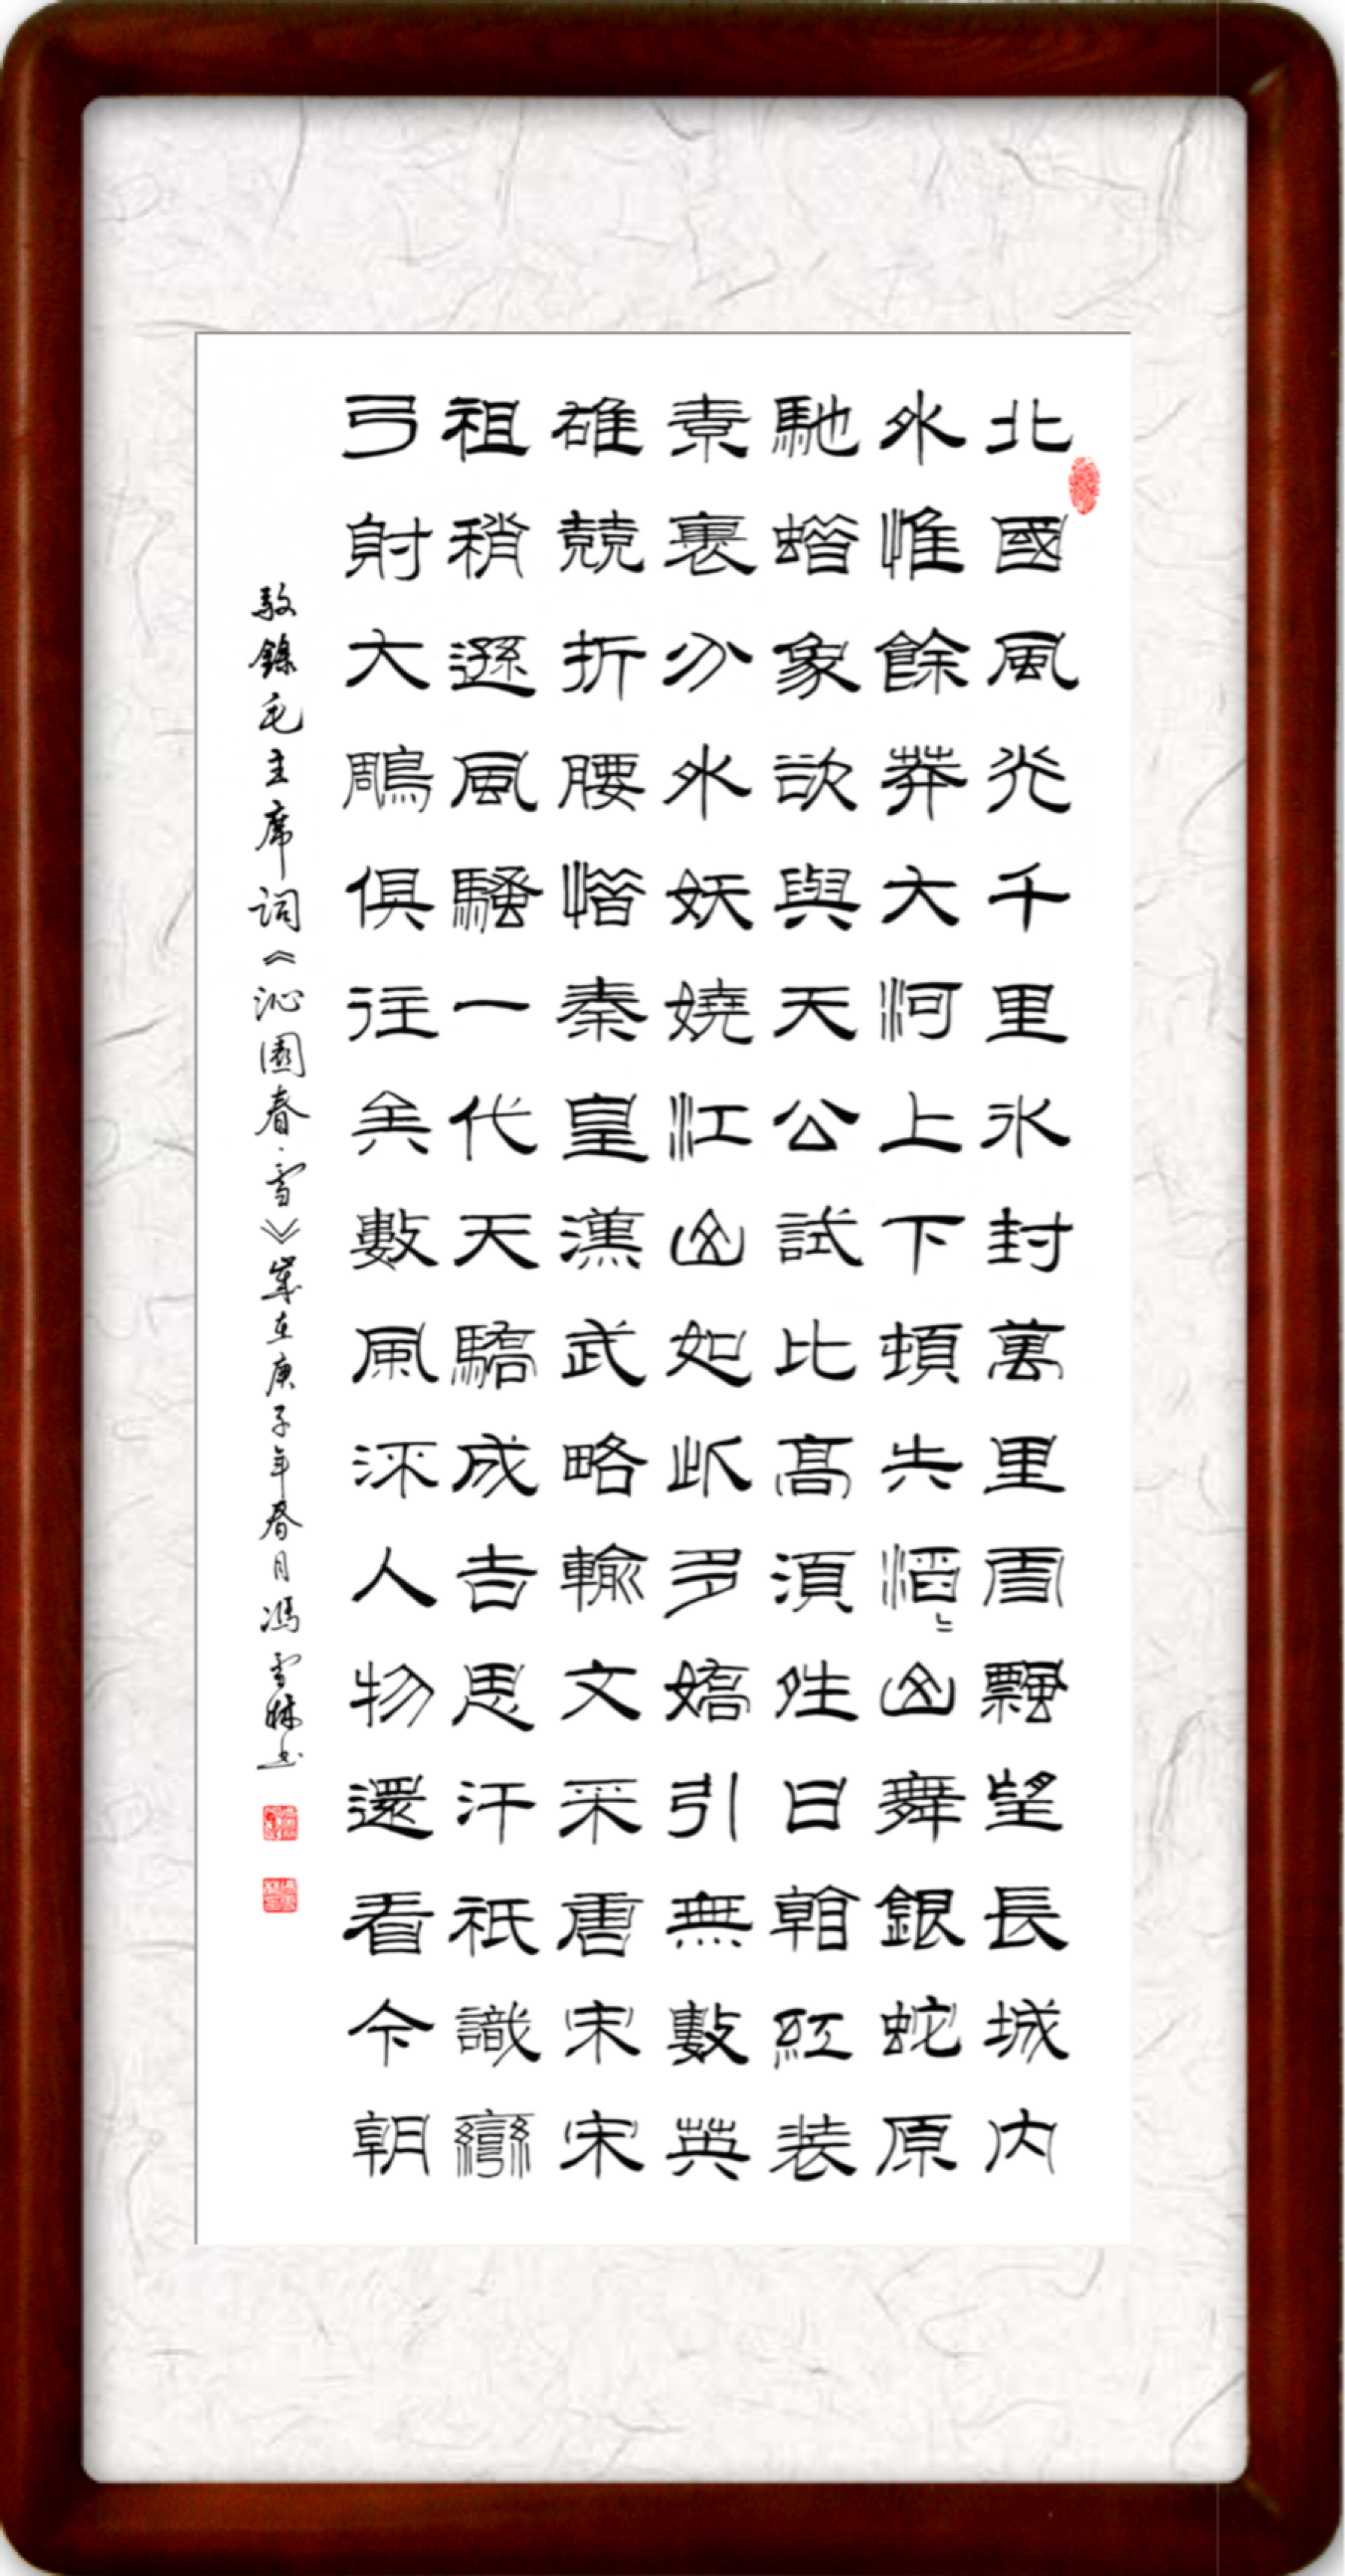 北國風光千里冰封萬里雪飄望長城內
外惟餘莽大河上下頓失滔〻山舞銀蛇原
馳蜡象欲與天公試比高須夝日看紅裝
素裹分外妖嬈江山如此多嬌引無數英
雄競折腰惜秦皇漢武略輸文采唐宋宋
祖稍遜風騷一代天驕成吉思汗祇識彎
弓射大鵰俱往矣數風流人物還看今朝
敬錄毛主席词《沁園春·雪》歲在庚子年春月馮雪林书